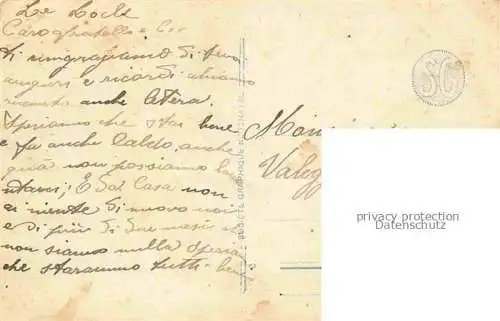 Le Locle
Caro fratello e Cog
ti ringraziamo di tuoi
auguri e ricordi abiamo
ricevuto anche letera.
Speriamo che stai bene
e fa anche Caldo, anche
quà non possiamo lam
ntarci; E dal Casa non
ci niente di nuovo noi
e di più di due mesi che
non siamo nulla speriamo
che staranno tutti bene
SOCIÉTÉ GRAPHIQUE NEUCHATEL
SG
Valeg
privacy protection
Datenschutz